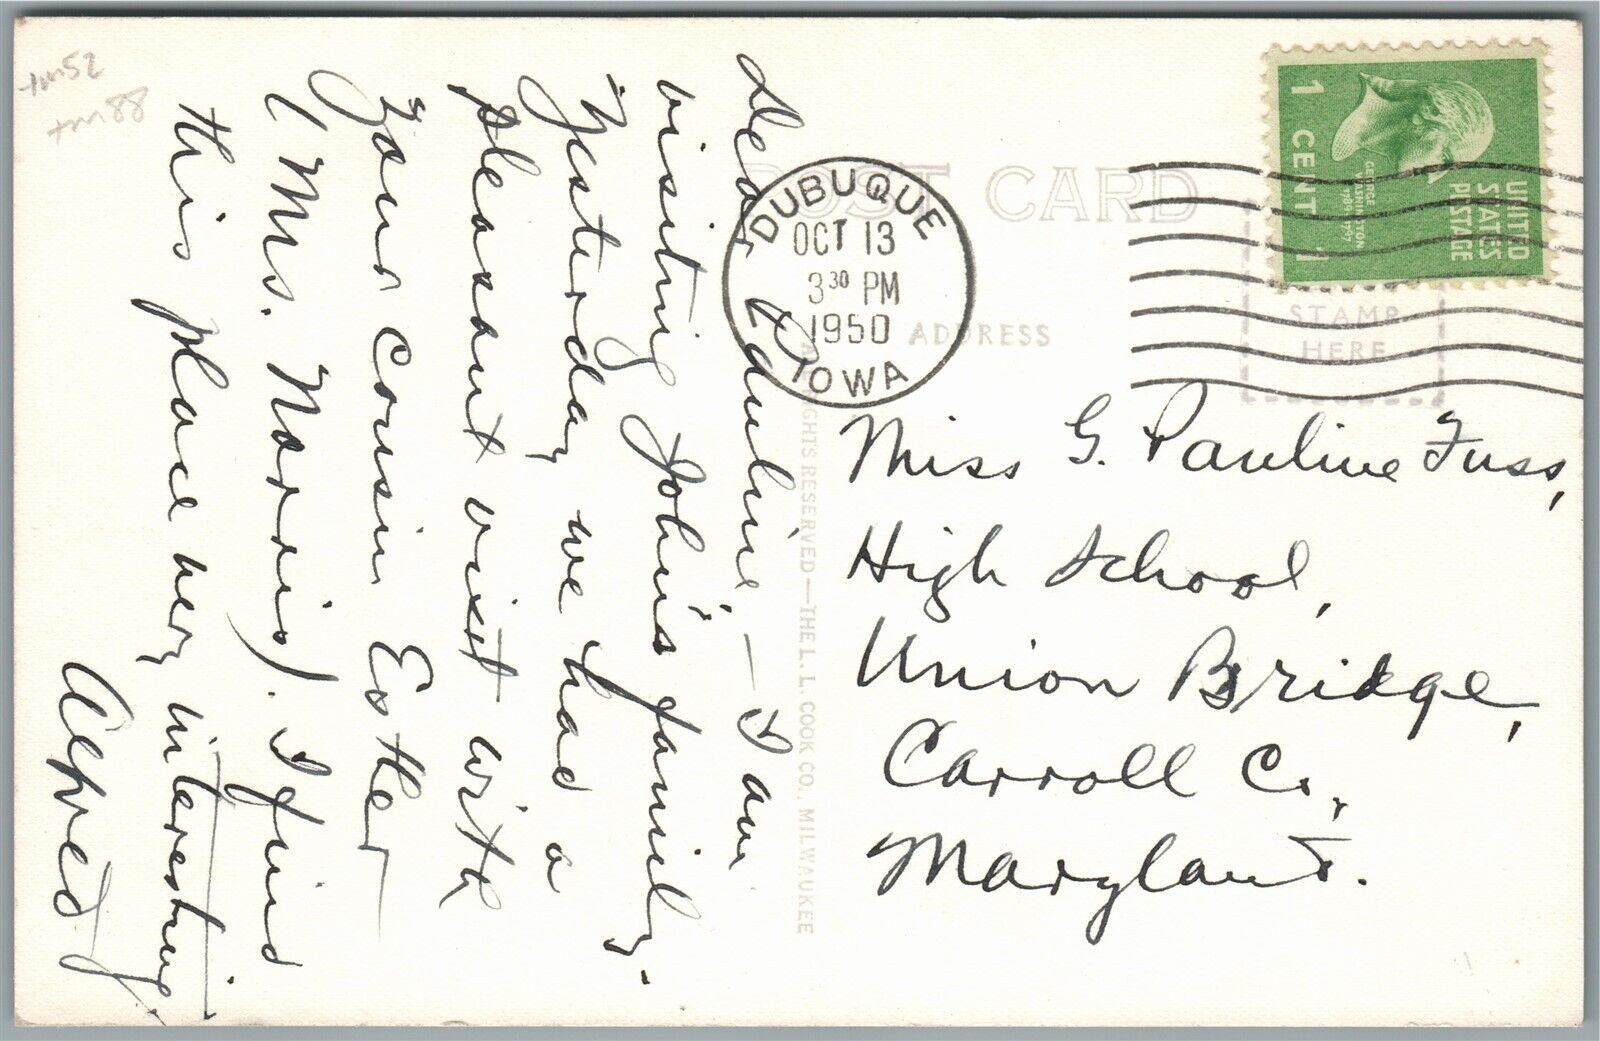 tm52
tm88
POST CARD
DUBUQUE
OCT 13
3 30 PM
1950
IOWA
ADDRESS
STAMP
HERE
1 CENT 1
GEORGE
WASHINGTON
UNITED
STATES
POSTAGE
Dear Pauline, — I am
visiting John's family.
Yesterday we had a
pleasant visit with
your cousin Esther
(Mrs. Norris). I find
this place very interesting.
Alfred
GHTS RESERVED — THE L. L. COOK CO., MILWAUKEE
Miss G. Pauline Fuss,
High School,
Union Bridge,
Carroll Co.,
Maryland.